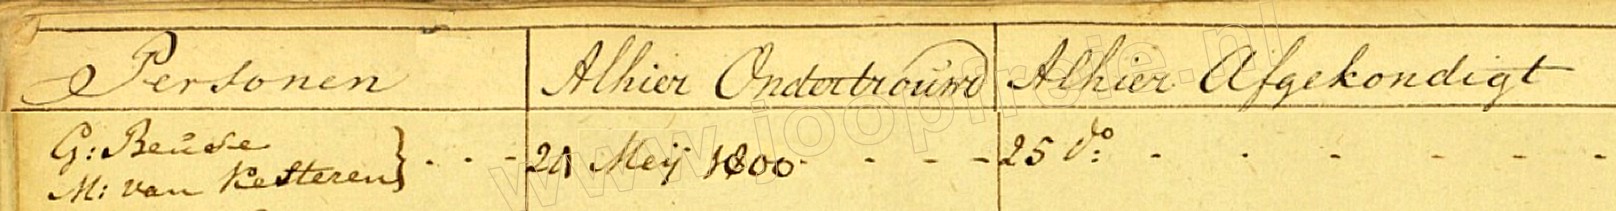 Personen Alhier Ondertrouwd Alhier Afgekondigt
G: Beuse
M: van Kesteren } - - - 21 Meij 1800 - - - - 25 do: - - - - - -
www.joopfroje.nl